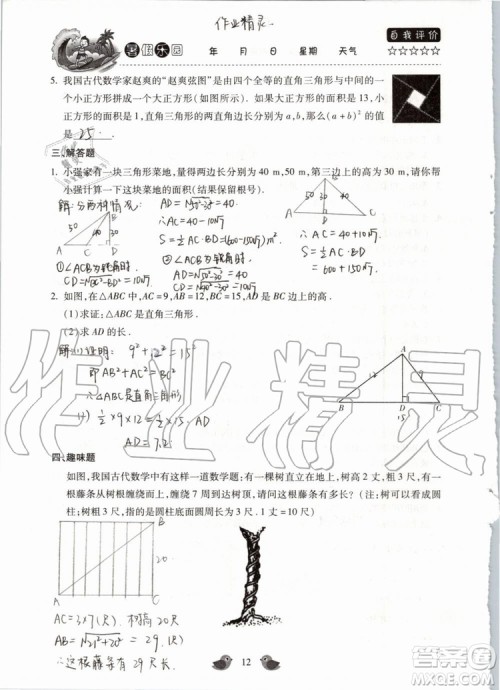 作业精灵
暑假乐园 年 月 日 星期 天气 自我评价
☆☆☆☆☆
5. 我国古代数学家赵爽的“赵爽弦图”是由四个全等的直角三角形与中间的一
个小正方形拼成一个大正方形(如图所示). 如果大正方形的面积是 13, 小正
方形的面积是 1, 直角三角形的两直角边长分别为 a, b, 那么(a+b)² 的值
是 25 .
三、解答题
1. 小强家有一块三角形菜地, 量得两边长分别为 40 m, 50 m, 第三边上的高为 30 m, 请你帮
小强计算一下这块菜地的面积(结果保留根号).
解: 分两种情况:
50 40 30
B A D C
① ∠ACB为钝角时
CD=√BC²-BD²=10√7
AD=√50²-30²=40
∴AC=40-10√7
S=½AC·BD=(600-150√7)m²
② ∠ACB为锐角时
CD=√40²-30²=10√7
50 30 40
B A D C
AD=√50²-30²=40
∴AC=40+10√7
S=½AC·BD
=600+150√7
2. 如图, 在△ABC 中, AC=9, AB=12, BC=15, AD 是 BC 边上的高.
(1) 求证: △ABC 是直角三角形.
(2) 求 AD 的长.
解: (1) 证明: 9²+12²=15²
即AB²+AC²=BC²
∴△ABC是直角三角形
(2) ½×9×12=½×15·AD
AD=7.2
A 12 9
B D C
15
四、趣味题
如图, 我国古代数学中有这样一道数学题: 有一棵树直立在地上, 树高 2 丈, 粗 3 尺, 有
一根藤条从树根缠绕而上, 缠绕 7 周到达树顶, 请问这根藤条有多长? (注: 树可以看成圆
柱; 树粗 3 尺, 指的是圆柱底面圆周长为 3 尺. 1 丈=10 尺)
B
A C
AC=3×7(尺) 树高20尺
AB=√21²+20²=29(尺)
∴这根藤条有29尺长
12
作业精灵
答案圈
MXQE.COM